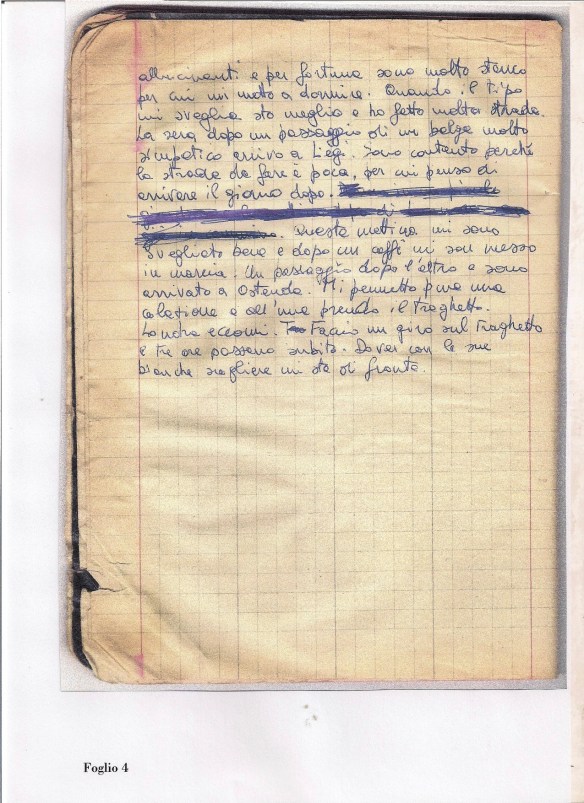 allucinanti e per fortuna sono molto stanco
per cui mi metto a dormire. Quando il tipo
mi sveglia sto meglio e ho fatto molta strada.
La sera dopo un passaggio di un belga molto
simpatico arrivo a Liegi. Sono contento perché
la strada da fare è poca, per cui penso di
arrivare il giorno dopo.
Questa mattina mi sono
svegliato bene e dopo un caffè mi son messo
in marcia. Un passaggio dopo l'altro e sono
arrivato a Ostenda. Mi permetto pure una
colazione e all'una prendo il traghetto.
Londra eccomi. Faccio un giro sul traghetto
e tre ore passano subito. Dover con le sue
bianche scogliere mi sta di fronte.
Foglio 4